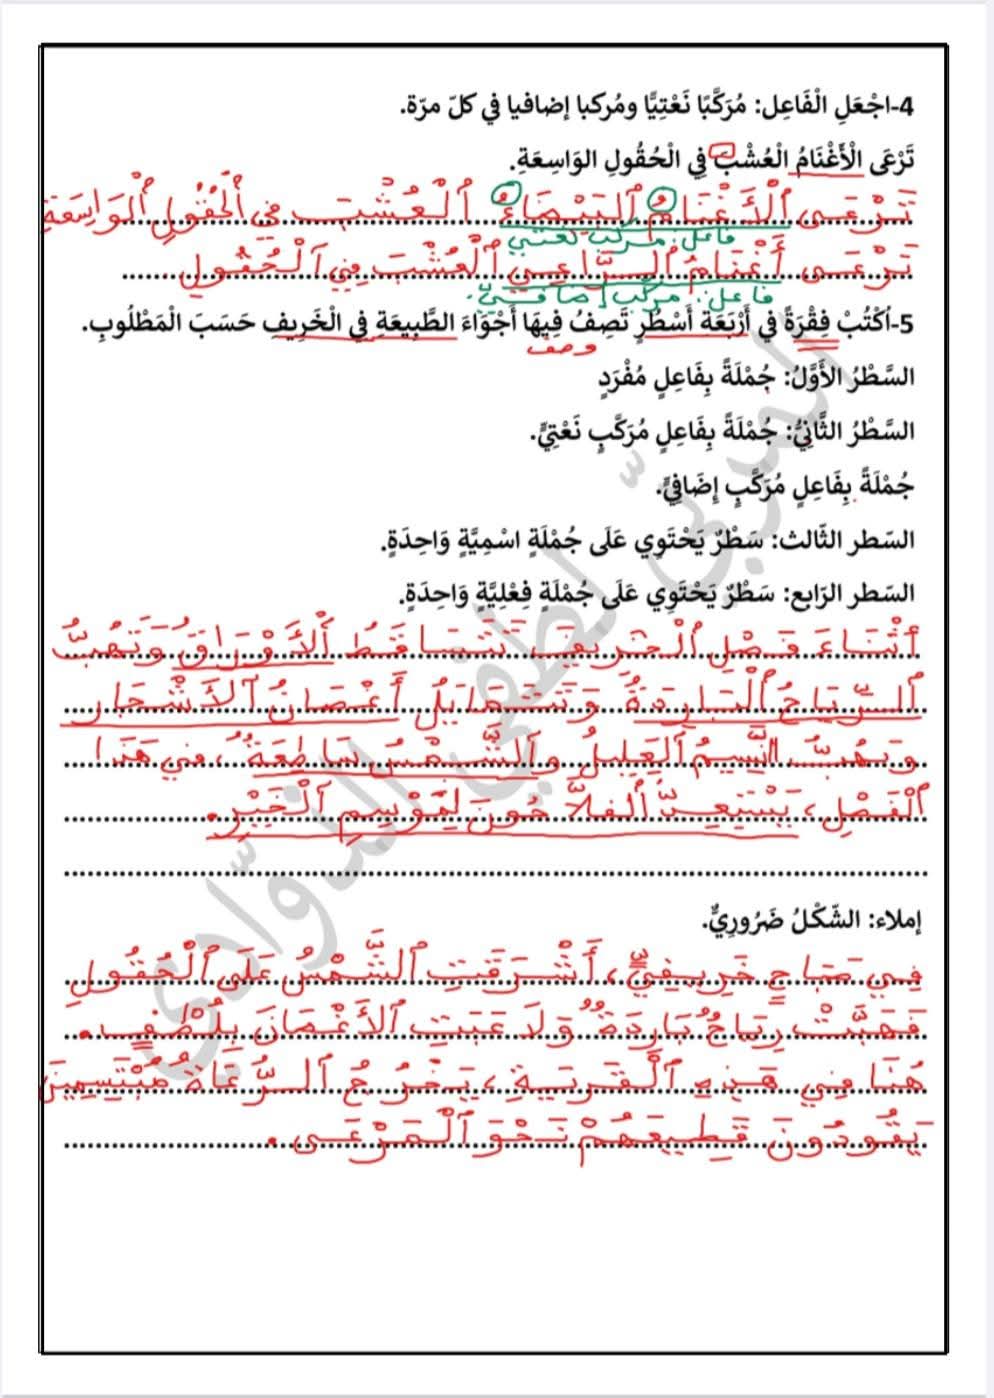 4-اجْعَلِ الْفَاعِل: مُرَكَّبًا نَعْتِيًّا ومُركبا إضافيا في كلّ مرّة.
تَرْعَى الْأَغْنَامُ الْعُشْبَ فِي الْحُقُولِ الوَاسِعَةِ.
تَرْعَى ٱلْأَغْنَامُ ٱلبَيْضَاءُ ٱلْعُشْبَ فِي ٱلْحُقُولِ ٱلوَاسِعَةِ
فاعل: مركب نعتي
تَرْعَى أَغْنَامُ ٱلرَّاعِي ٱلْعُشْبَ فِي ٱلْحُقُولِ
فاعل: مركب إضافيّ.
5-اُكْتُبْ فِقْرَةً في أَرْبَعَة أَسْطُرٍ تَصِفُ فِيهَا أَجْوَاءَ الطَّبِيعَةِ فِي الْخَرِيفِ حَسَبَ الْمَطْلُوبِ.
وصف
السَّطْرُ الأَوَّلُ: جُمْلَةً بِفَاعِلٍ مُفْرَدٍ
السَّطْرُ الثَّانِيُّ: جُمْلَةً بِفَاعِلٍ مُرَكَّبٍ نَعْتِيٍّ.
جُمْلَةً بِفَاعِلٍ مُرَكَّبٍ إِضَافِيٍّ.
السّطر الثّالث: سَطْرٌ يَحْتَوِي عَلَى جُمْلَةٍ اسْمِيَّةٍ وَاحِدَةٍ.
السّطر الرّابع: سَطْرٌ يَحْتَوِي عَلَى جُمْلَةٍ فِعْلِيَّةٍ وَاحِدَةٍ.
أَثْنَاءَ فَصْلِ ٱلْخَرِيفِ تَتَسَاقَطُ ٱلْأَوْرَاقُ وَتَهُبُّ
ٱلرِّيَاحُ ٱلْبَارِدَةُ وَتَتَمَايَلُ أَغْصَانُ ٱلْأَشْجَارِ
وَيَهُبُّ النَّسِيمُ ٱلعَلِيلُ وٱلشَّمْسُ سَاطِعَةٌ، فِي هَذَا
ٱلْفَصْلِ، يَسْتَعِدُّ ٱلفَلَّاحُونَ لِمَوْسِمِ ٱلْخَيْرِ.
إملاء: الشّكْلُ ضَرُورِيٌّ.
فِي صَبَاحٍ خَرِيفِيٍّ، أَشْرَقَتِ ٱلشَّمْسُ عَلَى ٱلْحُقُولِ
فَهَبَّتْ رِيَاحٌ بَارِدَةٌ وَلَاعَبَتِ ٱلْأَغْصَانَ بِلُطْفٍ.
هُنَا فِي هَذِهِ ٱلْقَرْيَةِ، يَخْرُجُ ٱلرُّعَاةُ مُبْتَسِمِينَ
يَقُودُونَ قَطِيعَهُمْ نَحْوَ ٱلْمَرْعَى.
السربّي لطفي الذّوّادي